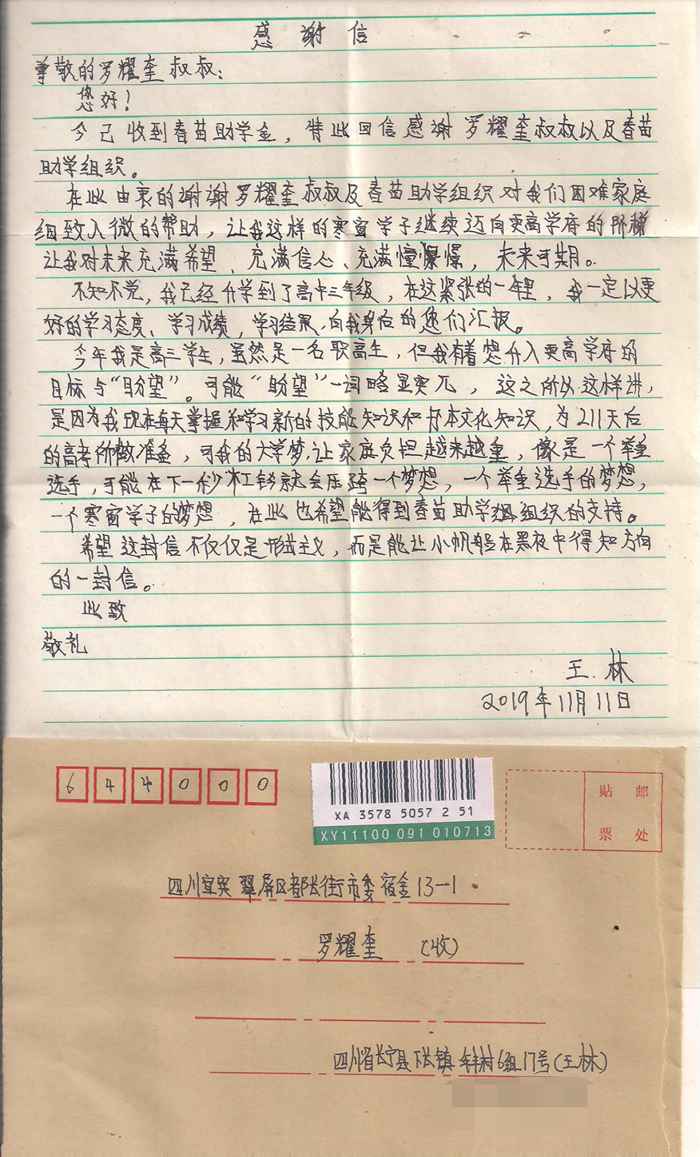 感谢信
尊敬的罗耀奎叔叔：
您好！
今已收到春苗助学金，特此回信感谢罗耀奎叔叔以及春苗
助学组织。
在此由衷的谢谢罗耀奎叔叔及春苗助学组织对我们困难家庭
细致入微的帮助，让我这样的寒窗学子继续迈向更高学府的阶梯
让我对未来充满希望、充满信心、充满憧憬，未来可期。
不知不觉，我已经升学到了高中三年级，在这紧张的一年里，我一定以更
好的学习态度、学习成绩，学习结果，向我身后的您们汇报。
今年我是高三学生，虽然是一名职高生，但我有着想升入更高学府的
目标与“盼望”。可能“盼望”一词略显突兀，这之所以这样讲，
是因为我现在每天掌握和学习新的技能知识和书本文化知识，为211天后
的高考所做准备，可我的大学梦，让家庭负担越来越重，像是一个举重
选手，可能在下一秒杠铃就会压垮一个梦想，一个举重选手的梦想，
一个寒窗学子的梦想，在此也希望能得到春苗助学组织的支持。
希望这封信不仅仅是形式主义，而是能让小帆船在黑夜中得知方向
的一封信。
此致
敬礼
王林
2019年11月11日
644000
XA 3578 5057 2 51
XY11100 091 010713
贴 邮
票 处
四川宜宾翠屏区都长街市委宿舍13—1
罗耀奎 （收）
四川省长宁县下长镇村6组17号（王林）